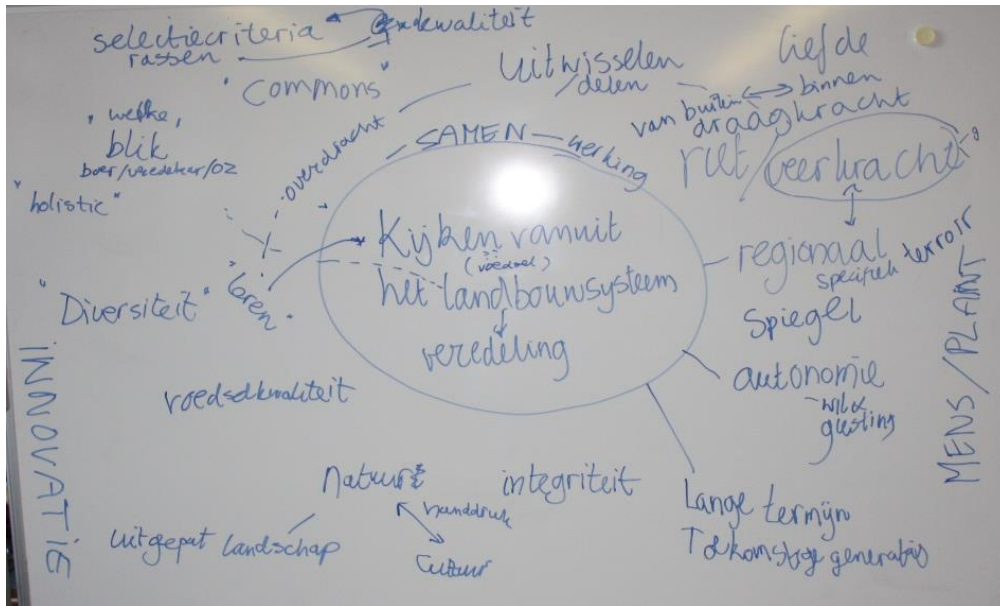 selectiecriteria
rassen
"commons"
uitwisselen
/delen
liefde
van buiten ↔ binnen
draagkracht
rust/veerkracht
"welke"
blik
boer/veredelaar/oz
"holistic"
overdracht
SAMEN-werking
Kijken vanuit
(voedsel)
het landbouwsysteem
↓
veredeling
regionaal
specifiek terroir
"Diversiteit"
"leren"
spiegel
autonomie
- wil &
goesting
voedselkwaliteit
INNOVATIE
MENS/PLANT
natuur
handdruk
cultuur
integriteit
uitgeput landschap
Lange termijn
Toekomstige generaties